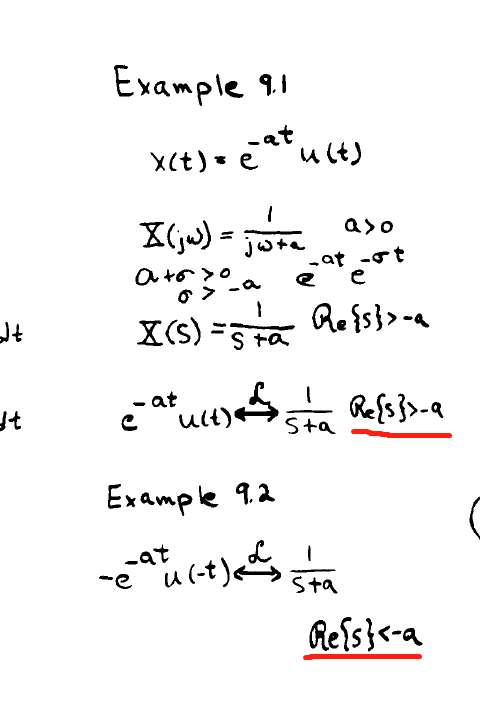 Example 9.1
x(t) = e^{-at} u(t)
X(jω) = 1/(jω+a) a>0
a+σ>0 e^{-at} e^{-σt}
σ>-a
X(s) = 1/(s+a) Re{s}>-a
dt
e^{-at} u(t) ⟷ℒ 1/(s+a) Re{s}>-a
dt
Example 9.2
-e^{-at} u(-t) ⟷ℒ 1/(s+a)
Re{s}<-a